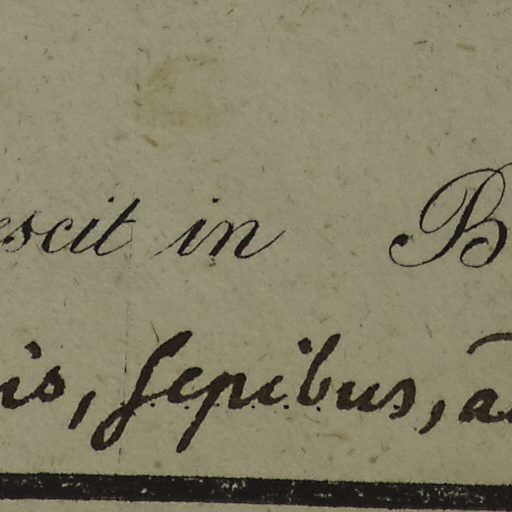 escit in B
is, sepibus, a